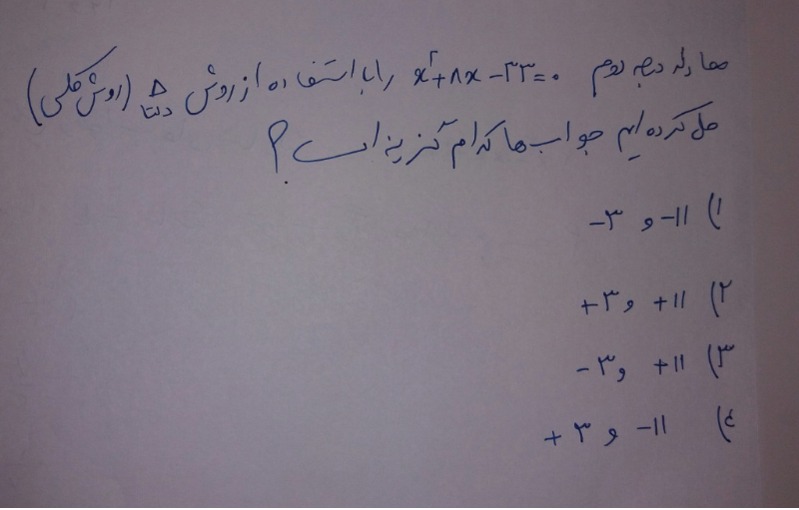 معادله درجه دوم x²+۸x-۳۳=۰ را با استفاده از روش دلتا Δ (روش کلی)
حل کرده ایم جواب ها کدام گزینه است؟
۱) -۱۱ و -۳
۲) +۱۱ و +۳
۳) +۱۱ و -۳
۴) -۱۱ و +۳